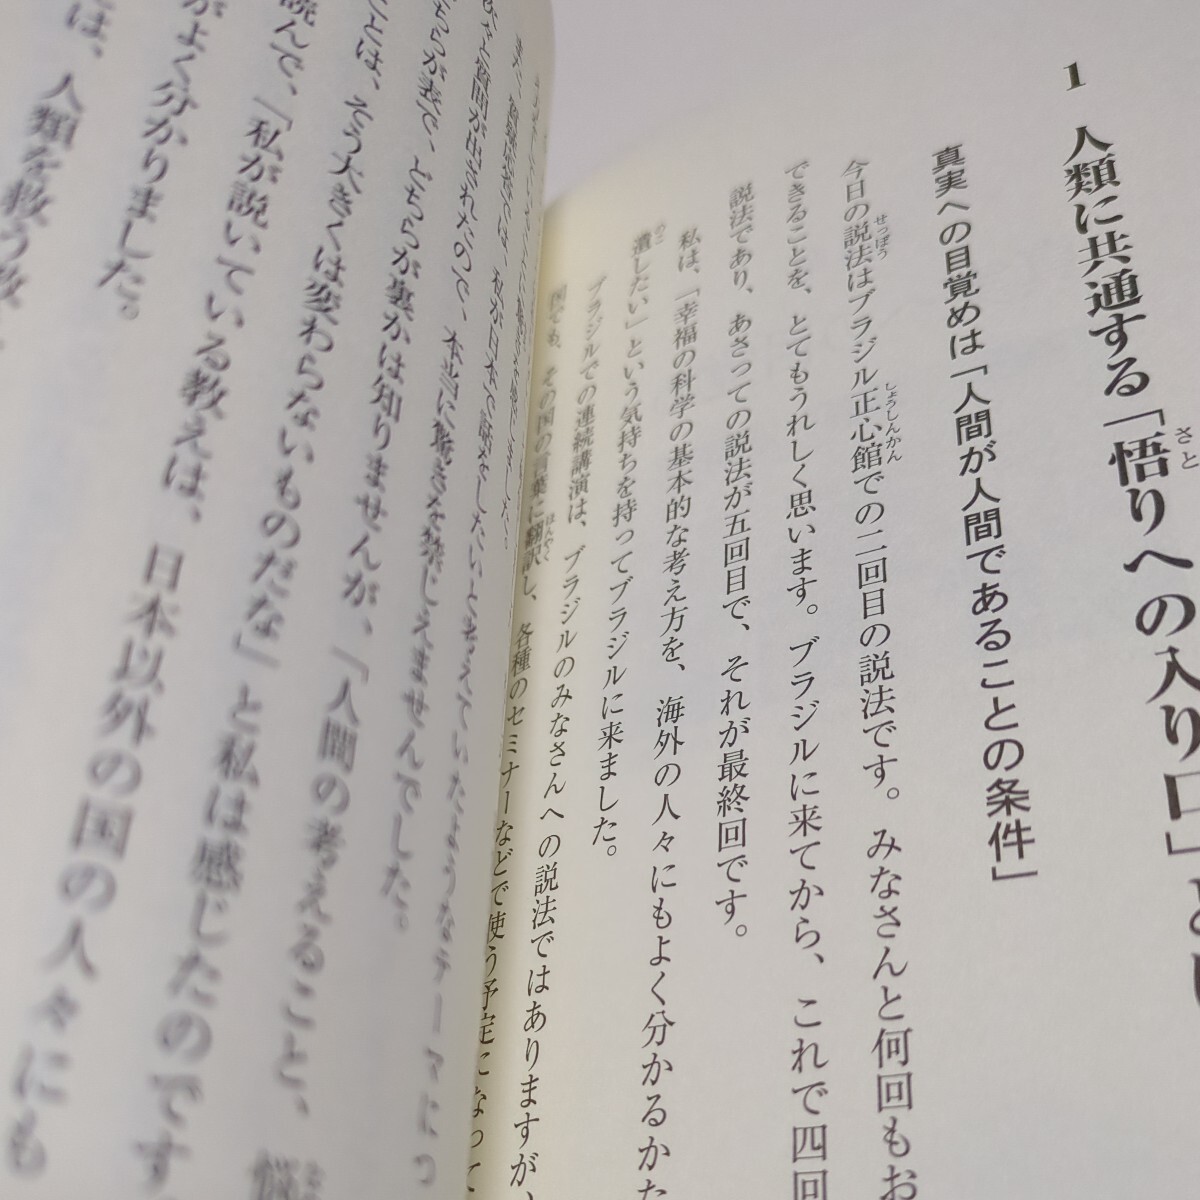 1 人類に共通する「悟りへの入り口」とし
真実への目覚めは「人間が人間であることの条件」
今日の説法はブラジル正心館での二回目の説法です。みなさんと何回もお
できることを、とてもうれしく思います。ブラジルに来てから、これで四回
説法であり、あさっての説法が五回目で、それが最終回です。
私は、「幸福の科学の基本的な考え方を、海外の人々にもよく分かるかた
遺したい」という気持ちを持ってブラジルに来ました。
ブラジルでの連続講演は、ブラジルのみなさんへの説法ではありますが、
国でも、その国の言葉に翻訳し、各種のセミナーなどで使う予定になって
私が日本で話をしたいと考えていたようなテーマにつ
と質問が出されたので、本当に驚きを禁じえませんでした。
ちらが表で、どちらが裏かは知りませんが、「人間の考えること、悩
ことは、そう大きくは変わらないものだな」と私は感じたのです
読んで、「私が説いている教えは、日本以外の国の人々にも
がよく分かりました。
は、人類を救う教